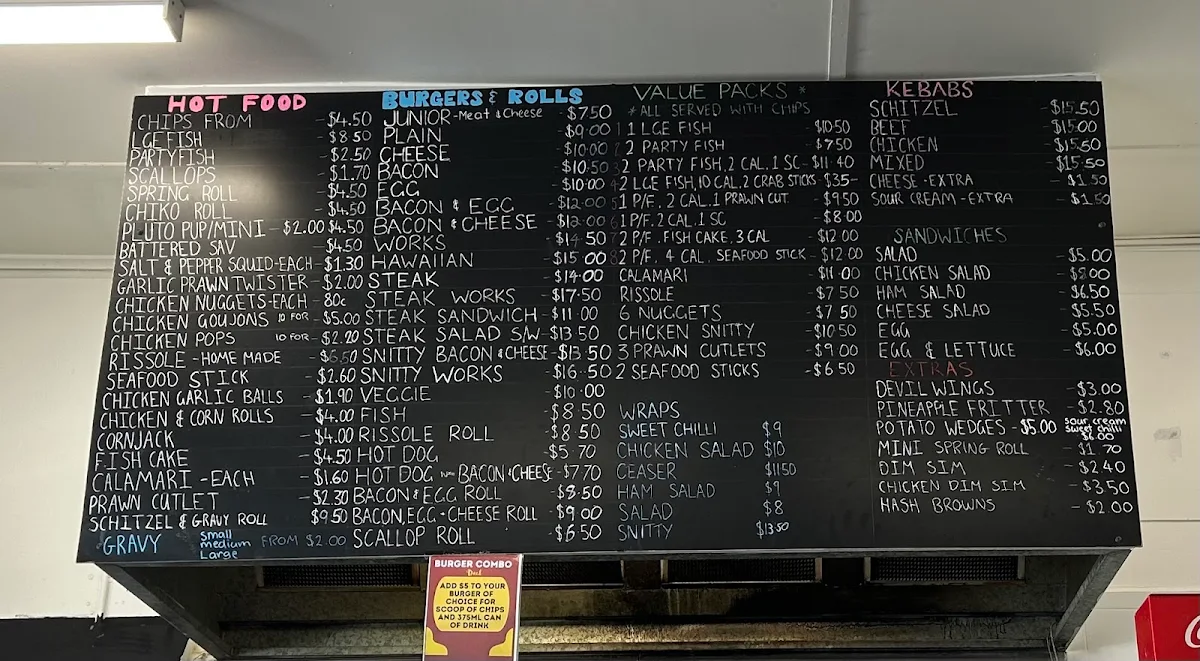 HOT FOOD
CHIPS FROM -$4.50
LGE FISH -$8.50
PARTYFISH -$2.50
SCALLOPS -$1.70
SPRING ROLL -$4.50
CHIKO ROLL -$4.50
PLUTO PUP/MINI -$2.00 $4.50
BATTERED SAV -$4.50
SALT & PEPPER SQUID-EACH -$1.30
GARLIC PRAWN TWISTER -$2.00
CHICKEN NUGGETS-EACH - 80c
CHICKEN GOUJONS 10 FOR - $5.00
CHICKEN POPS 10 FOR - $2.20
RISSOLE - HOME MADE $6.50
SEAFOOD STICK -$2.60
CHICKEN GARLIC BALLS -$1.90
CHICKEN & CORN ROLLS -$4.00
CORNJACK -$4.00
FISH CAKE -$4.50
CALAMARI - EACH -$1.60
PRAWN CUTLET -$2.30
SCHITZEL & GRAVY ROLL $9.50
GRAVY Small medium Large FROM $2.00
BURGERS & ROLLS
JUNIOR -Meat & Cheese -$7.50
PLAIN -$9.00
CHEESE -$10.00
BACON -$10.50
EGG -$10.00
BACON & EGG -$12.00
BACON & CHEESE
WORKS -$14.50
HAWAIIAN -$15.00
STEAK -$14.00
STEAK WORKS -$17.50
STEAK SANDWICH -$11.00
STEAK SALAD S/W -$13.50
SNITTY BACON & CHEESE -$13.50
SNITTY WORKS -$16.50
VEGGIE -$10.00
FISH -$8.50
RISSOLE ROLL -$8.50
HOT DOG -$5.70
HOT DOG BACON & CHEESE -$7.70
BACON & EGG ROLL -$8.50
BACON, EGG + CHEESE ROLL -$9.00
SCALLOP ROLL -$6.50
VALUE PACKS *
*ALL SERVED WITH CHIPS
1 1 LGE FISH -$10.50
2 PARTY FISH -$7.50
3 2 PARTY FISH, 2 CAL. 1 SC -$11.40
4 2 LGE FISH, 10 CAL. 2 CRAB STICKS -$35-
5 1 P/F, 2 CAL. 1 PRAWN CUT -$9.50
6 1 P/F. 2 CAL. 1 SC -$8.00
7 2 P/F. FISH CAKE. 3 CAL -$12.00
8 2 P/F. 4 CAL. SEAFOOD STICK -$12.00
CALAMARI -$11.00
RISSOLE -$7.50
6 NUGGETS -$7.50
CHICKEN SNITTY -$10.50
3 PRAWN CUTLETS -$9.00
2 SEAFOOD STICKS -$6.50
WRAPS
SWEET CHILLI $9
CHICKEN SALAD $10
CEASER $11.50
HAM SALAD $9
SALAD $8
SNITTY $13.50
KEBABS
SCHITZEL -$15.50
BEEF -$15.00
CHICKEN -$15.50
MIXED -$15.50
CHEESE - EXTRA -$1.50
SOUR CREAM - EXTRA -$1.50
SANDWICHES
SALAD -$5.00
CHICKEN SALAD
HAM SALAD -$6.50
CHEESE SALAD -$5.50
EGG -$5.00
EGG & LETTUCE -$6.00
EXTRAS
DEVIL WINGS -$3.00
PINEAPPLE FRITTER -$2.80
POTATO WEDGES -$5.00 sour cream sweet chilli $1.00
MINI SPRING ROLL -$1.70
DIM SIM -$2.40
CHICKEN DIM SIM -$3.50
HASH BROWNS -$2.00
BURGER COMBO
Deal
ADD $5 TO YOUR
BURGER OF
CHOICE FOR
SCOOP OF CHIPS
AND 375ML CAN
OF DRINK